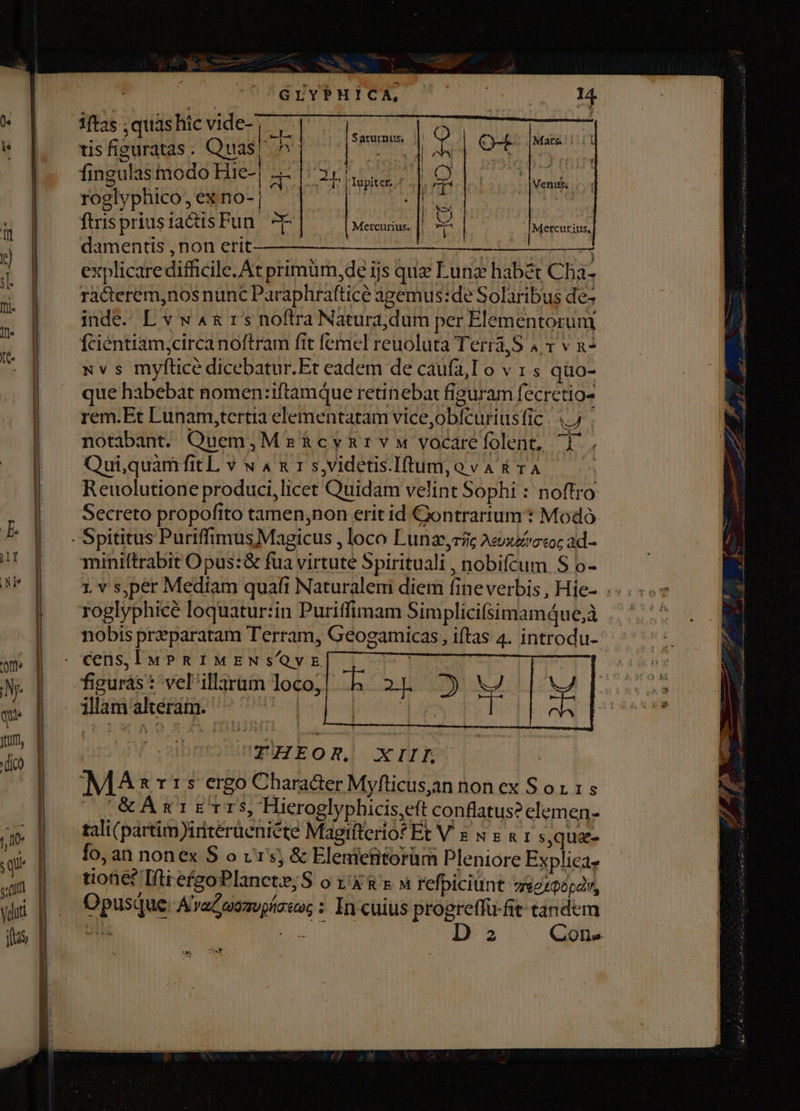 GLYPHICA, 14
iſtas , quas hic vide-
tis figuratas. Quas
ſingulas modo Hie-
roglyphico, ex no-
ſtris prius iactis Fun
damentis , non erit
Saturnus. Mars.
Iupiter. Venus.
Mercurius. Mercurius.
♄ ♃ ☿ ♀ ♂
explicare difficile. At primùm, de ijs quæ Lunæ habēt Cha-
racterem, nos nunc Paraphraſticè agemus: de Solaribus de-
inde. LVNARIS noſtra Natura, dum per Elementorum
ſcientiam, circa noſtram fit ſemel reuoluta Terrā, SATVR-
NVS myſticè dicebatur. Et eadem de cauſa, IOVIS quo-
que habebat nomen: iſtamque retinebat figuram ſecretio-
rem. Et Lunam, tertia elementatam vice, obſcuriùs ſic
notabant. Quem, MERCVRIVM vocare ſolent,
Qui, quàm ſit LVNARIS, videtis. Iſtum, QVARTA
Reuolutione produci, licet Quidam velint Sophi : noſtro
Secreto propoſito tamen, non erit id Contrarium : Modò
Spititus Puriſſimus Magicus , loco Lunæ, τῆς λευκάνσεως ad-
miniſtrabit Opus: & ſua virtute Spirituali , nobiſcum SO-
LVS, per Mediam quaſi Naturalem diem ſine verbis , Hie-
roglyphicè loquatur: in Puriſſimam Simpliciſsimamque, à
nobis præparatam Terram, Geogamicas , iſtas 4. introdu-
cens, IMPRIMENSQVE
figuras : vel illarum loco,
illam alteram.
♄ ♃ ☽ ☿
THEOR. XIII.
MARTIS ergo Character Myſticus, an non ex SOLIS
& ARIETIS, Hieroglyphicis, eſt conflatus? elemen-
tali (partim) interueniēte Magiſterio? Et VENERIS, quæ-
ſo, an non ex SOLIS, & Elementorùm Pleniore Explica-
tione? Iſti ergo Planetæ, SOLAREM reſpiciunt περιφορὰν,
Opusque: Αναζωοπυρήσεως : In cuius progreſſu fit tandem
D 2 Con-